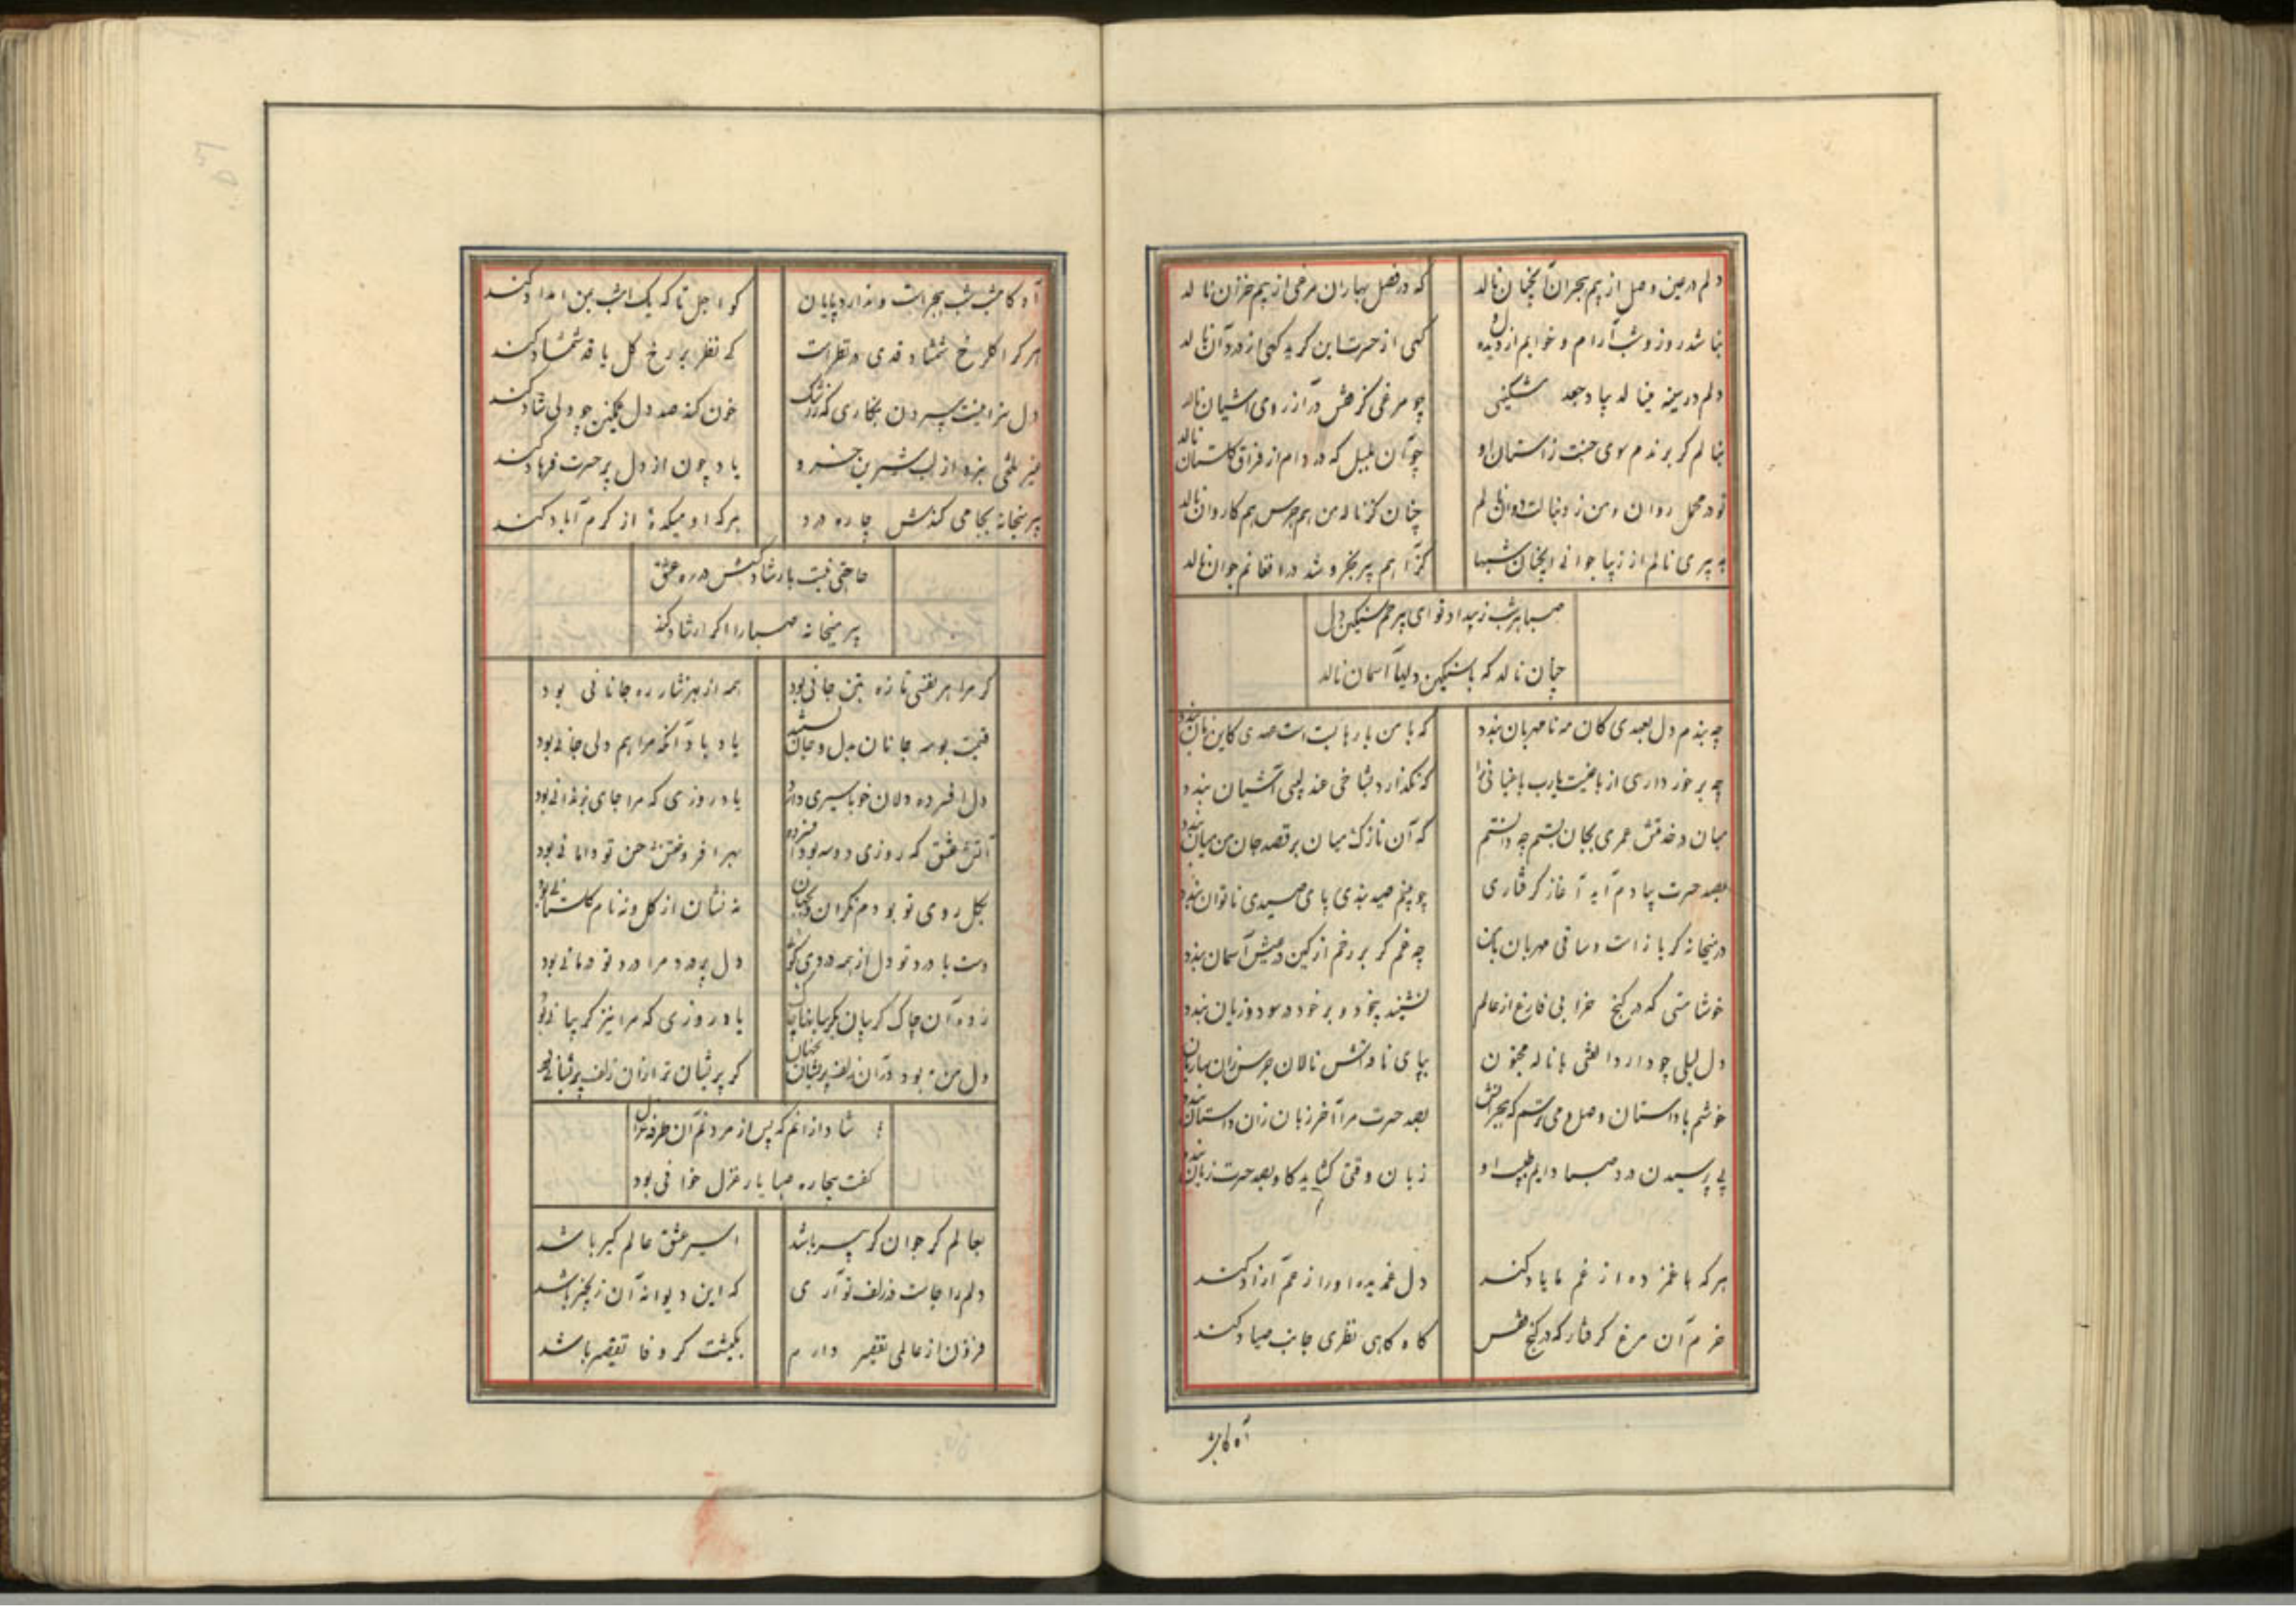 دلم در عین وصل از بیم هجران آنچنان نالد
که در فصل بهاران مرغی از بیم خزان نالد
نباشد روز و شب آرام و خوابم از دل و دیده
کهی از حسرت این گرید کهی از درد آن نالد
دلم در سینه مینالد بیاد
چو مرغی کز قفس در آرزوی آشیان نالد
بنالم گر برندم سوی جنت ز آستان او
چو آن بلبل که در دام از فراق گلستان نالد
تو در محمل روان و من ز دنبالت دوان نالم
چنان کز ناله من هم جرس هم کاروان نالد
به پیری نالم از زیبا جوانی آنچنان شبها
کز آهم پیر بخروشد در افغانم جوان نالد
صبا هر شب ز بیداد تو ای بیرحم سنگین دل
چنان نالد که با سنگین دلیها آسمان نالد
چه بندم دل بعهدی کان مه نامهربان بندد
که با من بارها بست است عهدی کاین زمان بندد
چه برخورداری از باغیست یارب باغبانی را
که نگذارد بشاخی عندلیبی آشیان بندد
میان در خدمتش عمری بجان بستم چه دانستم
که آن نازک میان بر قصد جان من میان بندد
بصد حسرت بیادم آید آغاز گرفتاری
چو بینم صید بندی پای صیدی ناتوان بندد
در میخانه گر باز است و ساقی مهربان با من
چه غم گر بر رخم از کین درعیش آسمان بندد
خوشا مستی که در کنج خرابی فارغ از عالم
نشیند بیخود و بر خود در سود و زیان بندد
دل لیلی چو دارد الفتی با ناله مجنون
بپای ناقه‌اش نالان جرس زان ساربان بندد
خوشم با داستان وصل و میترسم که هجرانش
بصد حسرت مرا آخر زبان زان داستان بندد
پی پرسیدن درد صبا دایم طبیب او
زبان وقتی گشاید کاو بصد حسرت زبان بندد
هر که با غمزده از غم ما یاد کند
دل غمدیده او را ز غم آزاد کند
خرم آن مرغ گرفتار که در کنج قفس
گاه گاهی نظری جانب صیاد کند
آه کامشب
آه کامشب شب هجرست و ندارد پایان
کو اجل تا که یک امشب بمن امداد کند
هر که را گلرخ شمشاد قدی در نظر است
که نظر بر رخ گل یا قد شمشاد کند
دل سزا نیست سپردن بنگاری که ز رشک
خون کند صد دل غمگین چو دلی شاد کند
غیر تلخی نبرد از لب شیرین خسرو
یاد چون از دل پر حسرت فرهاد کند
پیر میخانه بجامی کندش چاره درد
هر که او میکده از کرم آباد کند
حاجتی نیست بارشاد کسش در ره عشق
پیر میخانه صبا را اگر ارشاد کند
گر مرا هر نفسی تازه بتن جانی بود
همه از بهر نثار ره جانانی بود
قیمت بوسه جانان بدل و جان
یاد باد آنکه مرا هم دلی جانی بود
دل افسرده دلان خو باسیری دارد
یاد روزی که مرا جای بزندانی بود
آتش عشق که روزی دوسه بود افسرده
بهر افروختنش حسن تو دامانی بود
بگل روی تو بودم نگران در چمنی
نه نشان از گل و نه نام گلستانی بود
دست با درد تو دل از همه دردی گوئی
دل پر درد مرا درد تو درمانی بود
یاد روزی که مرا نیز گریبانی بود
دل من بود در آن زلف پریشان پنهان
گر پریشان تر از آن زلف پریشانی بود
شادازانم که پس از مردنم آن طرفه غزال
گفت بیچاره صبا یار غزل خوانی بود
بعالم گر جوان گر پیر باشد
اسیر عشق عالمگیر باشد
دلم را جاست در زلف تو آری
که این دیوانه آن زنجیر باشد
فزون از عالمی تقصیر دارم
بکیشت گر وفا تقصیر باشد